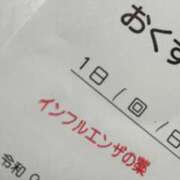 おくす
1日/回/日
インフルエンザの薬
令和